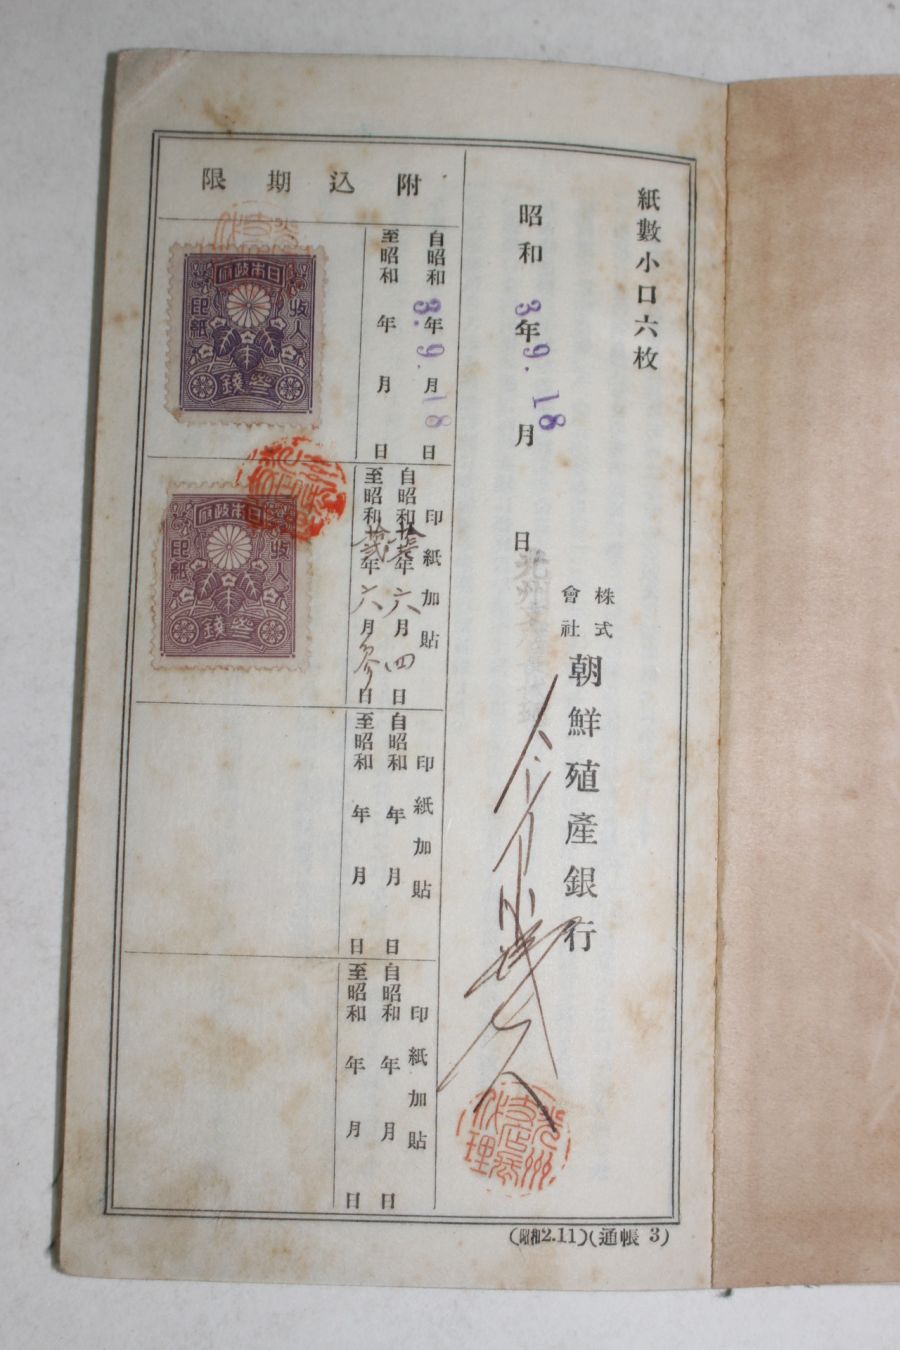 紙數小口六枚
昭和3年9.18月日
株式會社朝鮮殖產銀行
光州支店
附込期限
自昭和3.年9.月18日
至昭和年月日
日本政府
收入
印紙
參錢
印紙加貼
自昭和年六月四日
至昭和年六月參日
日本政府
收入
印紙
參錢
印紙加貼
自昭和年月日
至昭和年月日
印紙加貼
自昭和年月日
至昭和年月日
(昭和2.11)(通帳 3)